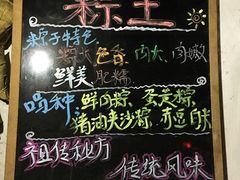 粽王
粽子特色
色香 肉大 肉嫩
鲜美 肥糯
品种 鲜肉粽 蛋黄粽
猪油夹沙粽 赤豆白米
祖传秘方
传统风味